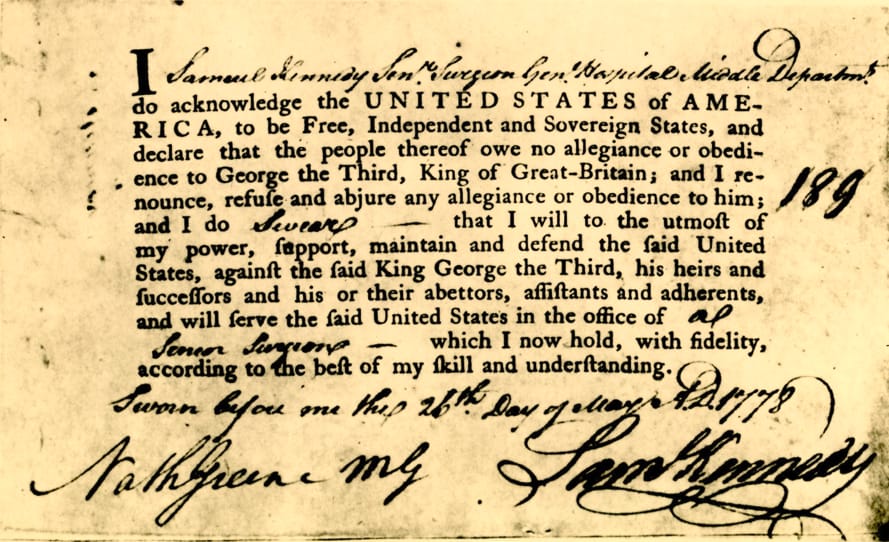 I Samuel Kennedy Senr. Surgeon Genl. Hospital Middle Departmt.
do acknowledge the UNITED STATES of AME-
RICA, to be Free, Independent and Sovereign States, and
declare that the people thereof owe no allegiance or obedi-
ence to George the Third, King of Great-Britain; and I re-
nounce, refuſe and abjure any allegiance or obedience to him;
189
and I do Swear — that I will to the utmoſt of
my power, ſupport, maintain and defend the ſaid United
States, againſt the ſaid King George the Third, his heirs and
ſucceſſors and his or their abettors, aſſiſtants and adherents,
and will ſerve the ſaid United States in the office of a
Senior Surgeon — which I now hold, with fidelity,
according to the beſt of my ſkill and underſtanding.
Sworn before me this 26th Day of May A.D. 1778
Nath Greene MG Saml Kennedy